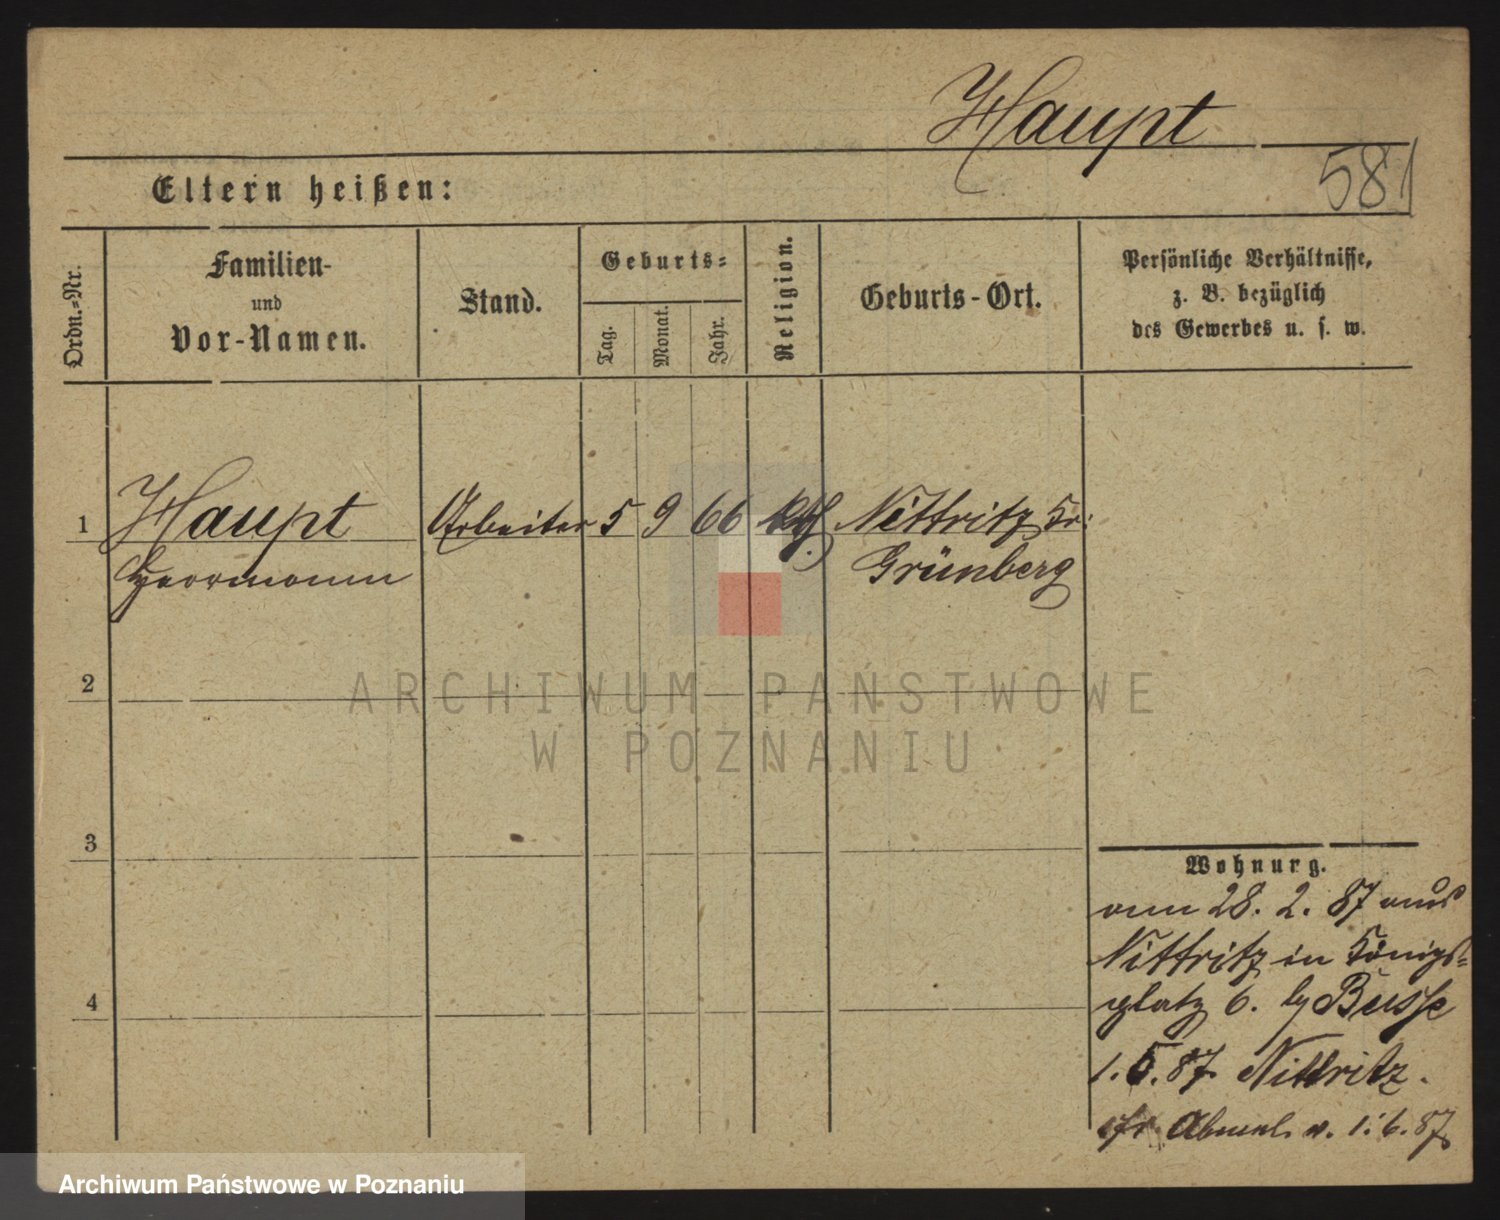 Haupt
581
Eltern heißen:
Ordn.-Nr.
Familien-
und
Vor-Namen.
Stand.
Geburts-
Tag.
Monat.
Jahr.
Religion.
Geburts-Ort.
Persönliche Verhältnisse,
z. B. bezüglich
des Gewerbes u. s. w.
1 Haupt Arbeiter 5 9 66 kth. Nittritz Kr:
Herrmann Grünberg
2
3
4
Wohnung.
am 28. 2. 87 aus
Nittritz in Königs-
platz 6. b/ Busse
1. 5. 87. Nittritz.
Abmel. v. 1. 6. 87
ARCHIWUM PAŃSTWOWE
W POZNANIU
Archiwum Państwowe w Poznaniu